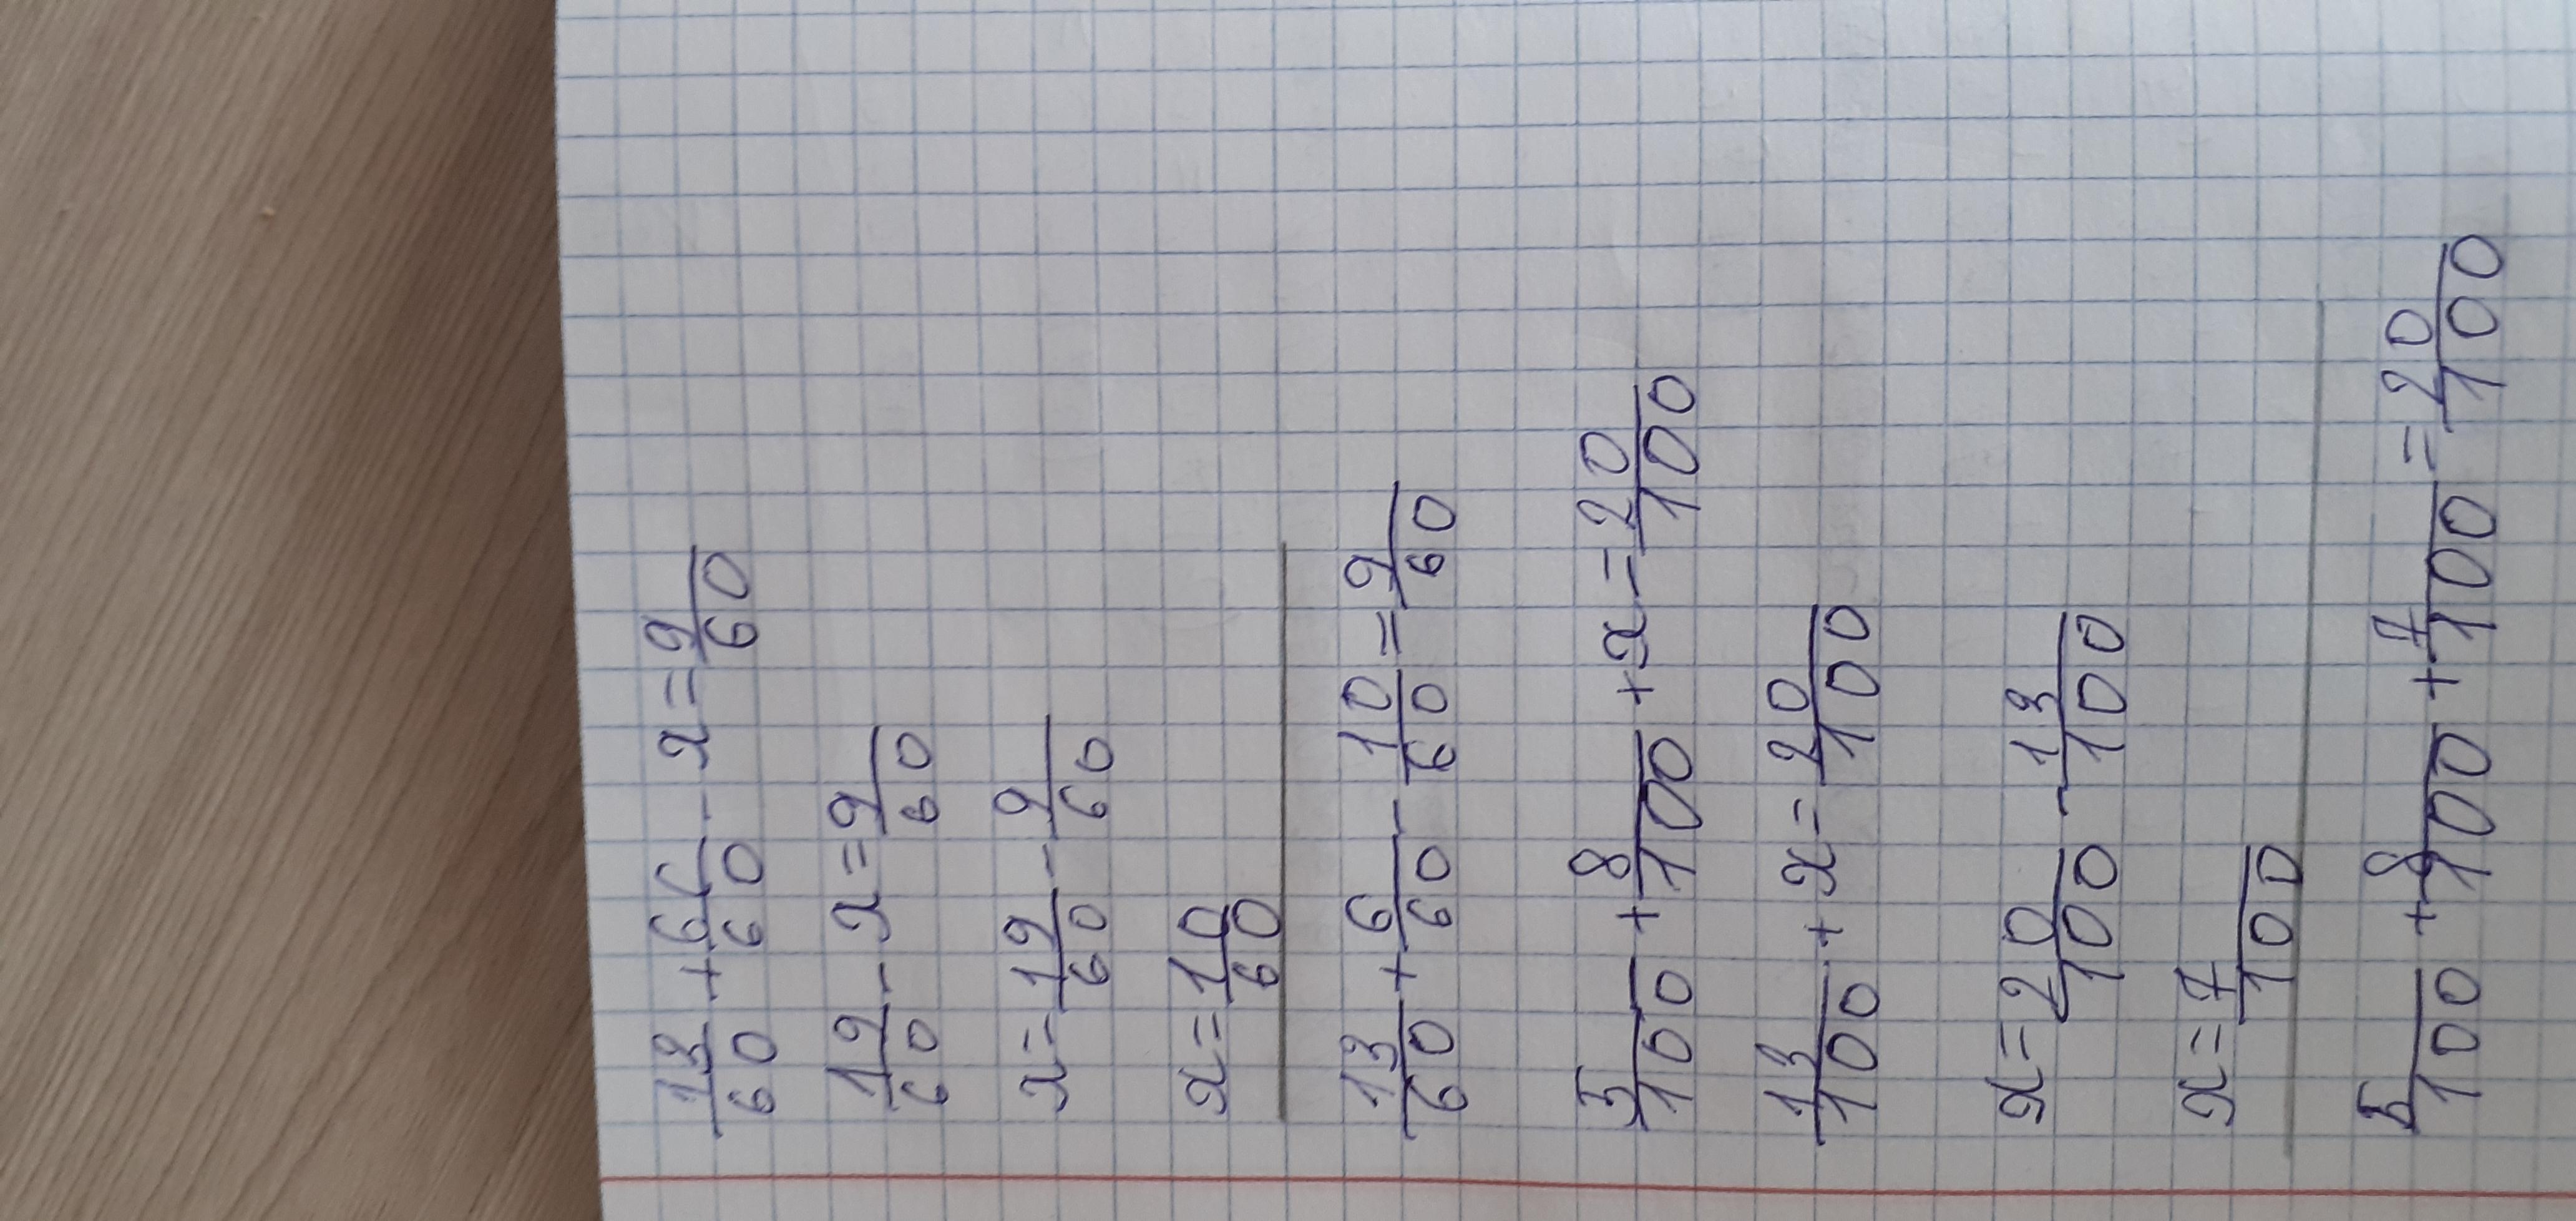 13/60 + 6/60 - x = 9/60
19/60 - x = 9/60
x = 19/60 - 9/60
x = 10/60
13/60 + 6/60 - 10/60 = 9/60
5/100 + 8/100 + x = 20/100
13/100 + x = 20/100
x = 20/100 - 13/100
x = 7/100
5/100 + 8/100 + 7/100 = 20/100